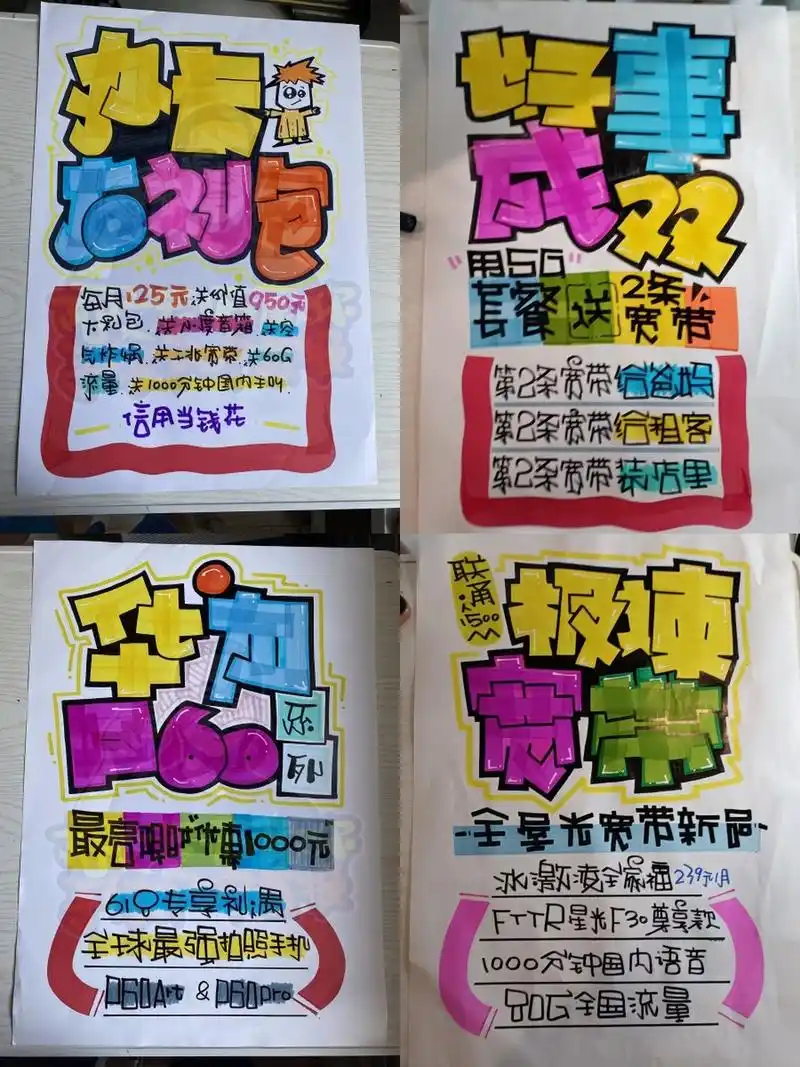 办卡
大礼包
每月125元送价值950元
大礼包.送小度音箱.送空
气炸锅.送工兆宽带.送60G
流量.送1000分钟国内主叫.
信用当钱花
好事
成双
"用5G"
套餐送2条宽带
第2条宽带给爸妈
第2条宽带给租客
第2条宽带装店里
华为
P60系列
最高聊优惠1000元
618专享礼遇
全球最强拍照手机
P60Art & P60pro
联通1500M
极速
宽带
全星光宽带新品
冰激凌全家福239元/月
FTTR星光F30尊享款
1000分钟国内语音
80G全国流量